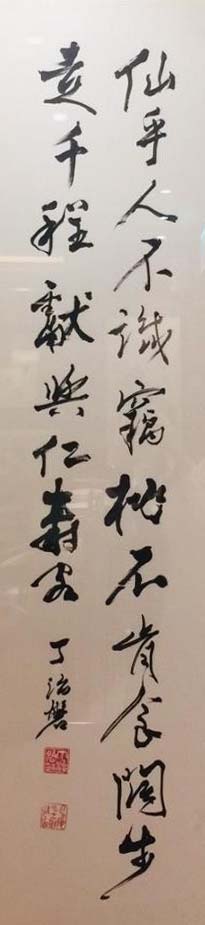 仙乎人不識竊桃不肯食闊步
走千程獻與仁壽客 丁治磐